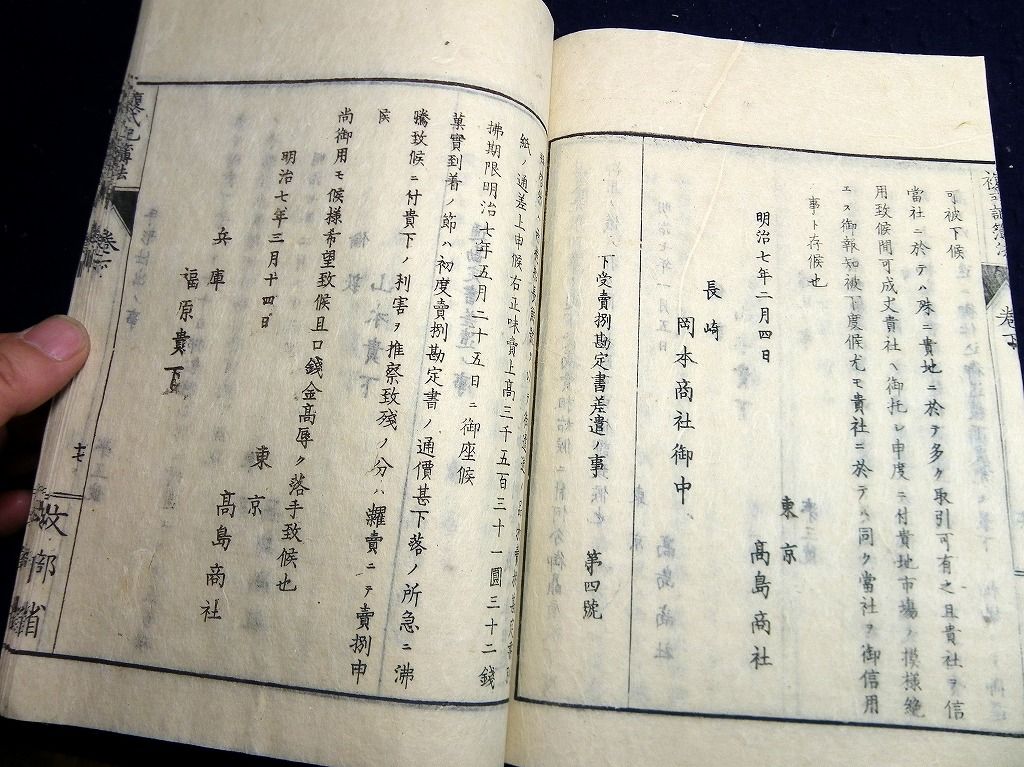 可被下候
當社ニ於テハ殊ニ貴地ニ於テ多ク取引可有之且貴社ヲ信
用致候間可成丈貴社ヘ御托シ申度ニ付貴地市場ノ模樣絶
エス御報知被下度候尤モ貴社ニ於テハ同ク當社ヲ御信用
事ト存候也
明治七年二月四日
東京
高島商社
長崎
岡本商社御中
下受賣捌勘定書差遣ノ事
第四號
紙ノ通差上申候右正味賣上高三千五百三十一圓三十二錢
拂期限明治七年五月二十五日ニ御座候
菓實到着ノ節ハ初度賣捌勘定書ノ通價甚下落ノ所急ニ沸
騰致候ニ付貴下ノ利害ヲ推察致殘ノ分ハ糶賣ニテ賣捌申
候
尚御用モ候樣希望致候且口錢金高辱ク落手致候也
明治七年三月十四日
東京
高島商社
兵庫
福原貴下
複式記簿法
卷下
文部省